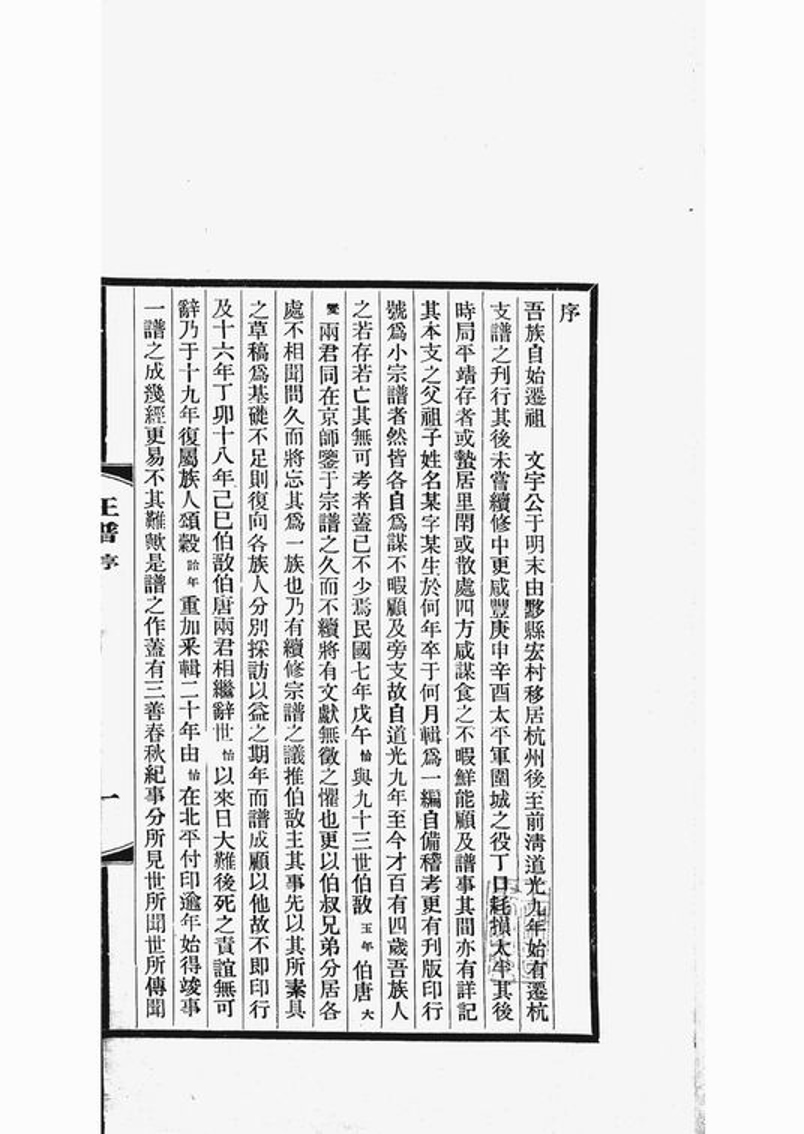 序
吾族自始遷祖　文宇公于明末由黟縣宏村移居杭州後至前清道光九年始有遷杭
支譜之刊行其後未嘗續修中更咸豐庚申辛酉太平軍圍城之役丁口耗損太半其後
時局平靖存者或蟄居里閈或散處四方咸謀食之不暇鮮能顧及譜事其間亦有詳記
其本支之父祖子姓名某字某生於何年卒于何月輯爲一編自備稽考更有刊版印行
號爲小宗譜者然皆各自爲謀不暇顧及旁支故自道光九年至今才百有四歲吾族人
之若存若亡其無可考者蓋已不少焉民國七年戊午怡與九十三世伯敔玉年伯唐大
燮兩君同在京師鑒于宗譜之久而不續將有文獻無徵之懼也更以伯叔兄弟分居各
處不相聞問久而將忘其爲一族也乃有續修宗譜之議推伯敔主其事先以其所素具
之草稿爲基礎不足則復向各族人分別採訪以益之期年而譜成顧以他故不即印行
及十六年丁卯十八年己巳伯敔伯唐兩君相繼辭世怡以來日大難後死之責誼無可
辭乃于十九年復屬族人頌穀詒年重加釆輯二十年由怡在北平付印逾年始得竣事
一譜之成幾經更易不其難歟是譜之作蓋有三善春秋紀事分所見世所聞世所傳聞
譜
序
一